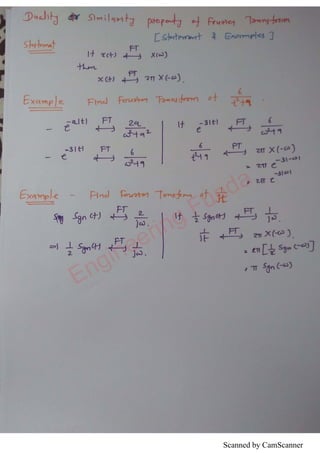 Duality or Similarity property of Fourier Transform
[Statement & Examples]
Statement
If x(t) ←FT→ X(ω)
then
X(t) ←FT→ 2π X(-ω).
Example Find Fourier Transform of 6/(t²+9).
- e^{-a|t|} ←FT→ 2a/(ω²+a²)
- e^{-3|t|} ←FT→ 6/(ω²+9)
If e^{-3|t|} ←FT→ 6/(ω²+9)
6/(t²+9) ←FT→ 2π X(-ω)
= 2π e^{-3|-ω|}
= 2π e^{-3|ω|}
Example - Find Fourier Transform of 1/jt
Sgn(t) ←FT→ 2/jω.
⇒ 1/2 Sgn(t) ←FT→ 1/jω.
If 1/2 Sgn(t) ←FT→ 1/jω.
1/jt ←FT→ 2π X(-ω).
= 2π[1/2 Sgn(-ω)]
= π Sgn(-ω)
Engineering Funda
Scanned by CamScanner